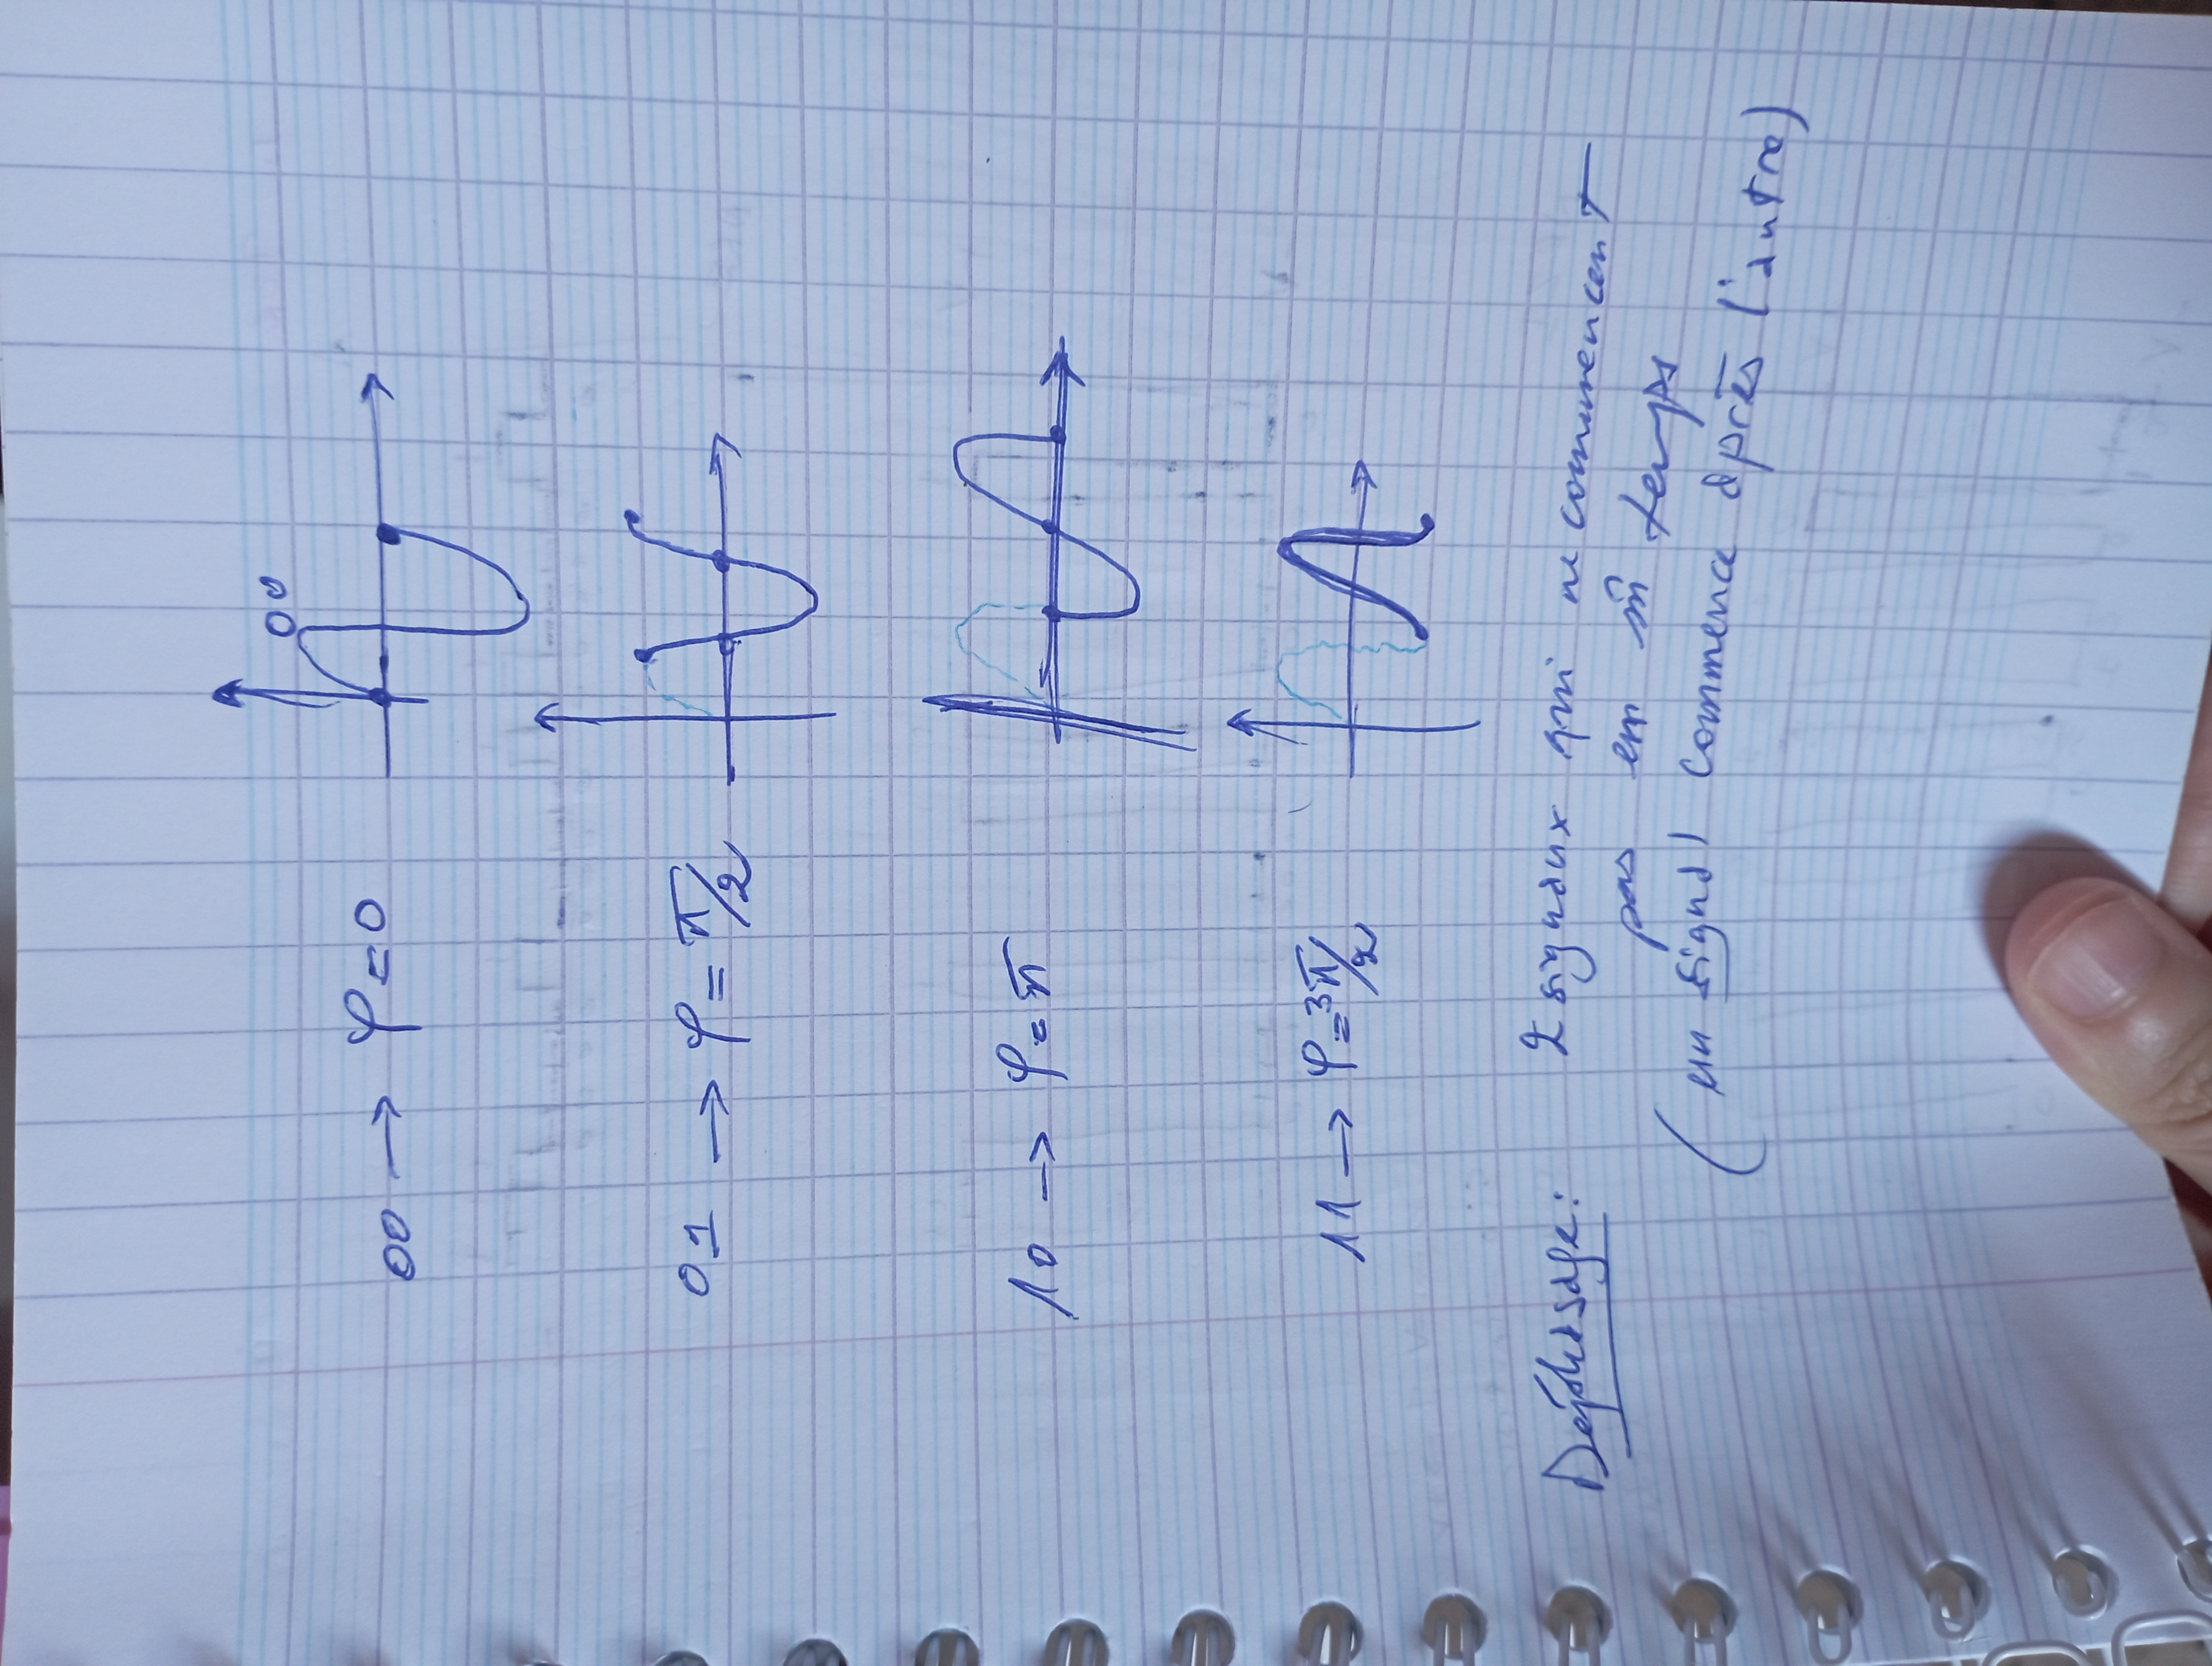 00
00 → φ = 0
01 → φ = π/2
10 → φ = π
11 → φ = 3π/2
Déphasage : 2 signaux qui ne commencent
pas en m̂ temps
( un signal commence après l'autre)